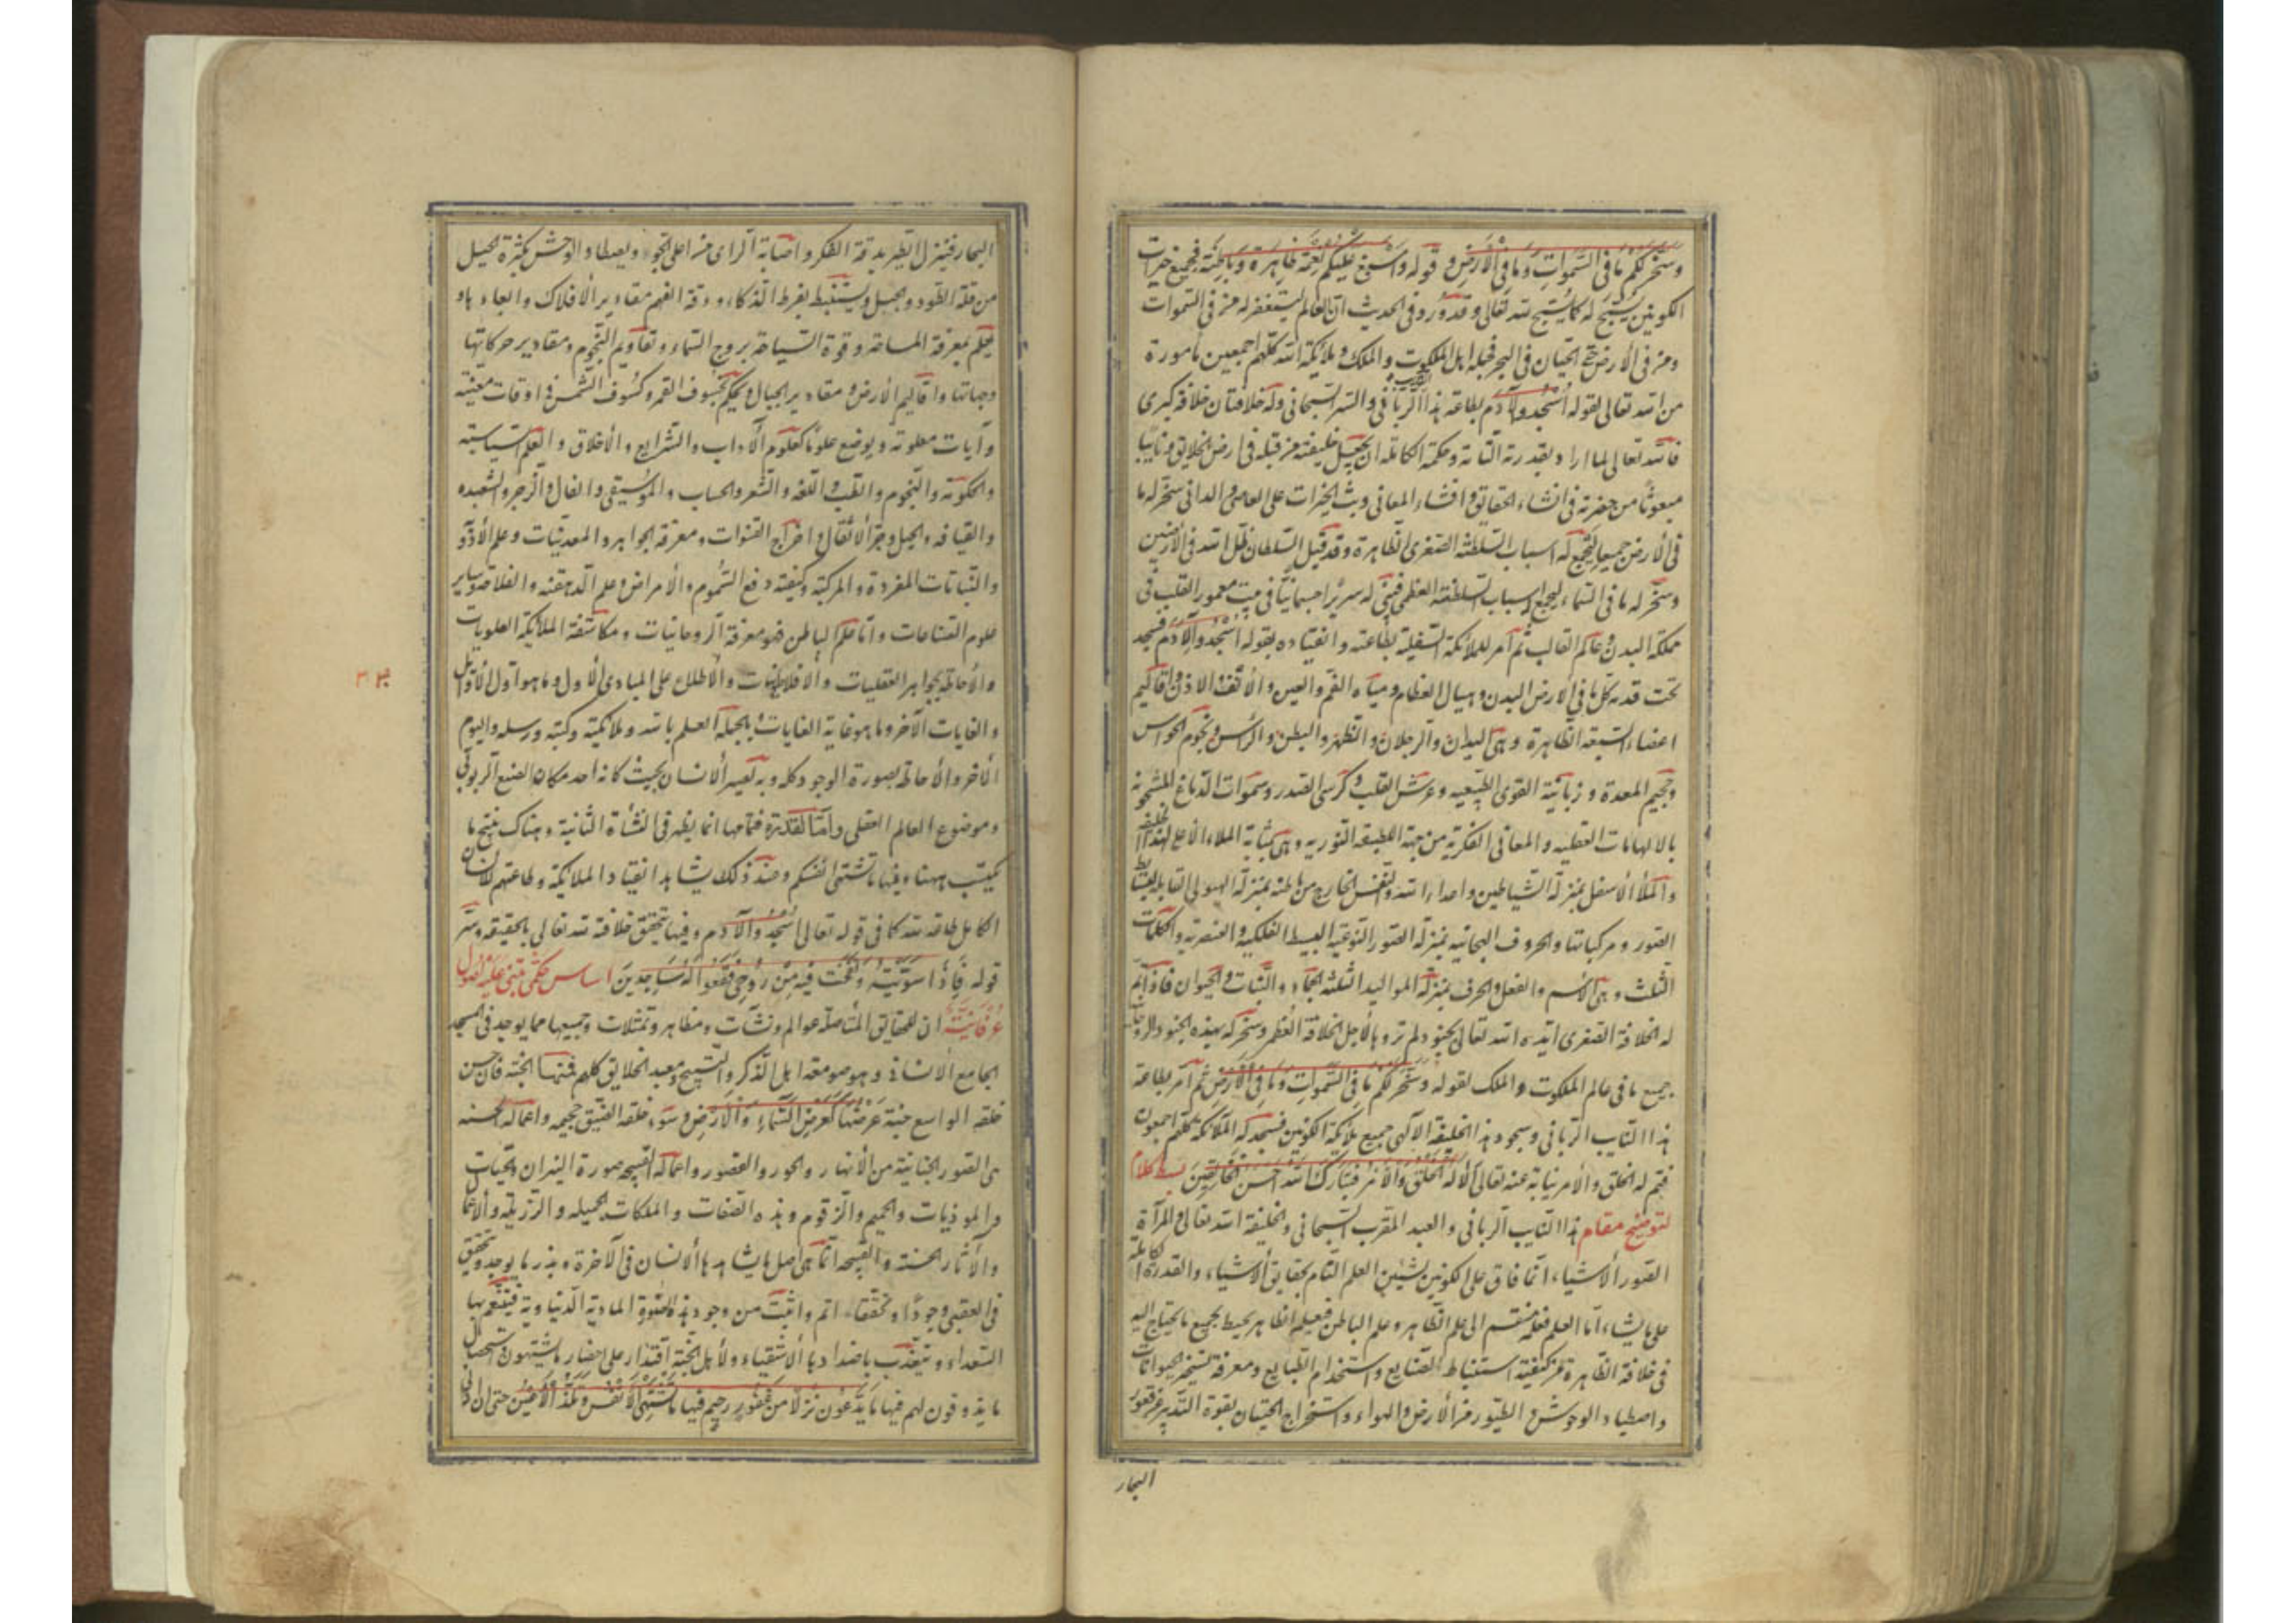 وسخر لكم ما في السموات وما في الأرض وقوله واسبغ عليكم نعمه ظاهرة وباطنة فجميع خيرات
الكونين يسبح له كما يسبح لله تعالى وقد ورد في الحديث ان العالم ليستغفر له من في السموات
ومن في الأرض حتى الحيتان في البحر فجملة اهل الملكوت والملك وملائكة الله كلهم اجمعين مأمورة
من الله تعالى لقوله اسجدوا لآدم بطاعة هذا الرباني والسر السبحاني وله خلافتان خلافة كبرى
فالله تعالى لما اراد بقدرته التامة وحكمته الكاملة ان يجعل خليفته من قبله في ارض الخلايق ونايبا
مبعوثا من حضرته في انشاء الحقائق وافشاء المعاني وبث الخيرات على القاصي والداني سخر له ما
في الأرض جميعا ليجمع له اسباب السلطنة الصغرى الظاهرة وقد قيل السلطان ظل الله في الأرضين
وسخر له ما في السماء ليجمع له اسباب السلطنة العظمى فبنى له سريرا جسمانيا في بيت معمور القلب في
مملكة البدن وعالم القالب ثم أمر للملائكة السفلية بطاعته وانقياده بقوله اسجدوا لآدم فسجد
تحت قدمه كل ما في الأرض البدن وجبال العظام ومياه الفم والعين والانف والاذن واقاليم
اعضاء السبعة الظاهرة وهي اليدان والرجلان والظهر والبطن والرأس ونجوم الحواس
وجحيم المعدة وزبانية القوى الطبيعيه وعرش القلب وكرسي الصدر وسموات الدماغ المشحونه
بالالهامات العقليه والمعاني الفكرية من جهة اللطيفه النوريه وهي بمثابة الملاء الأعلى لهذا الخليفه
والملأ الأسفل بمنزلة الشياطين واعداء الله والنفس الخارج من باطنه بمنزلة الهيولى القابله
الصور ومركباتها والحروف الهجائيه بمنزلة الصور النوعيه البسيط الفلكيه والعنصريه والكلمات
الثلث وهي الأسم والفعل والحرف بمنزلة المواليد الثلثة الجماد والنبات والحيوان فاذا تم
له الخلافة الصغرى ايده الله تعالى بجنود لم تروها لأجل الخلافة العظمى وسخر له بهذه الجنود
جميع ما في عالم الملكوت والملك لقوله وسخر لكم ما في السموات وما في الأرض ثم أمر بطاعة
هذا النايب الرباني وسجود هذا الخليفة الالهي جميع ملائكة الكونين فسجد له الملائكة كلهم اجمعون
فتم له الخلق والأمر نيابة عنه تعالى ألا له الخلق والأمر فتبارك الله احسن الخالقين بسط كلام
لتوضيح مقام هذا النايب الرباني والعبد المقرب السبحاني والخليفة الله تعالى والمرآة
الصور الأشياء انما فاق على الكونين بشيئين العلم التام بحقايق الأشياء والقدرة الكاملة
على ما يشاء اما العلم فعلمه منقسم الى علم الظاهر وعلم الباطن فعلمه الظاهر يحيط بجميع ما يحتاج اليه
في خلافة الظاهرة من كيفية استنباط الصنايع واستخدام الطبايع ومعرفة تسخير الحيوانات
واصطياد الوحوش والطيور من الأرض والهواء واستخراج الحيتان بقوة التدبير من قعور
البحار
البحار فينزل الطير بدقة الفكر واصابة الراى من اعلى الجو ويصطاد الوحش بكثرة الحيل
من قلة الطود والجبل ويستنبط بفرط الذكاء ودقة الفهم مقادير الأفلاك وابعادها و
يعلم بمعرفة المساحه وقوة السياحه بروج السماء وتقاويم النجوم ومقادير حركاتها
وجهاتها واقاليم الأرض ومقادير الجبال ويحكم بخسوف القمر وكسوف الشمس في اوقات معينة
وآيات معلومة ويوضع علوما كعلوم الآداب والشرايع والأخلاق والعلم السياسية
والحكومة والنجوم والطب واللغة والشعر والحساب والموسيقى والفال والزجر والشعبده
والقيافه والحيل وجر الأثقال واخراج القنوات ومعرفة الجواهر والمعدنيات وعلم الأدوية
والنباتات المفردة والمركبة وكيفية دفع السموم والأمراض وعلم الدهقنه والفلاحة وساير
علوم الصناعات واما علم الباطن فهو معرفة الروحانيات ومكاشفة الملائكة العلويات
والأحاطه بجواهر العقليات والأفلاطونيات والأطلاع على المبادى الأول وما هو اول الأوايل
والغايات الآخر وما هو غاية الغايات وبالجمله العلم بالله وملائكته وكتبه ورسله واليوم
الآخر والأحاطه بصورة الوجود كله وبه يصير الأنسان بحيث كانه احد مكان الصنع الربوبي
وموضوع العالم العقلي واما القدرة فتمامها انما يظهر في النشأة الثانية وهناك ينتج ما
يكتسب ههنا وفيها ما تشتهى انفسكم وعند ذلك يشاهد انقياد الملائكة وطاعتهم للانسان
الكامل طاعة لله كما في قوله تعالى اسجدوا لآدم وفيها يتحقق خلافة لله تعالى بالحقيقه وسر
قوله فاذا سويته ونفخت فيه من روحي فقعوا له ساجدين اساس حكمي يبتنى عليه اصول
عرفانية ان للحقايق المتأصله عوالم ونشآت ومظاهر وتمثلات وجميعها مما يوجد في المسجد
الجامع الأنساني وهو صومعة اهل الذكر والتسبيح ومعبد الخلايق كلهم فمنها الجنة فان حسن
خلقه الواسع جنة عرضها كعرض السماء والأرض وسوء خلقه الضيق جحيمه واعماله الحسنه
هى الصور الجنانية من الأنهار والحور والقصور واعماله القبيحه صورة النيران والحيات
والموذيات والحميم والزقوم وهذه الصفات والملكات الجميله والرذيله والأعمال
والآثار الحسنة والقبيحه انما هي اصل ما يشاهدها الأنسان في الآخرة وبذر ما يوجد ويتحقق
في العقبى وجودا وتحققا اتم واثبت من وجود هذه الصورة المادية الدنياوية فيتنعم بها
السعداء ويتعذب باضدادها الأشقياء ولأهل الجنة اقتدار على احضار ما يشتهون
ما يذوقون لهم فيها ما يدعون نزلا من غفور رحيم فيها ما تشتهى الأنفس وتلذ الأعين حتى ان